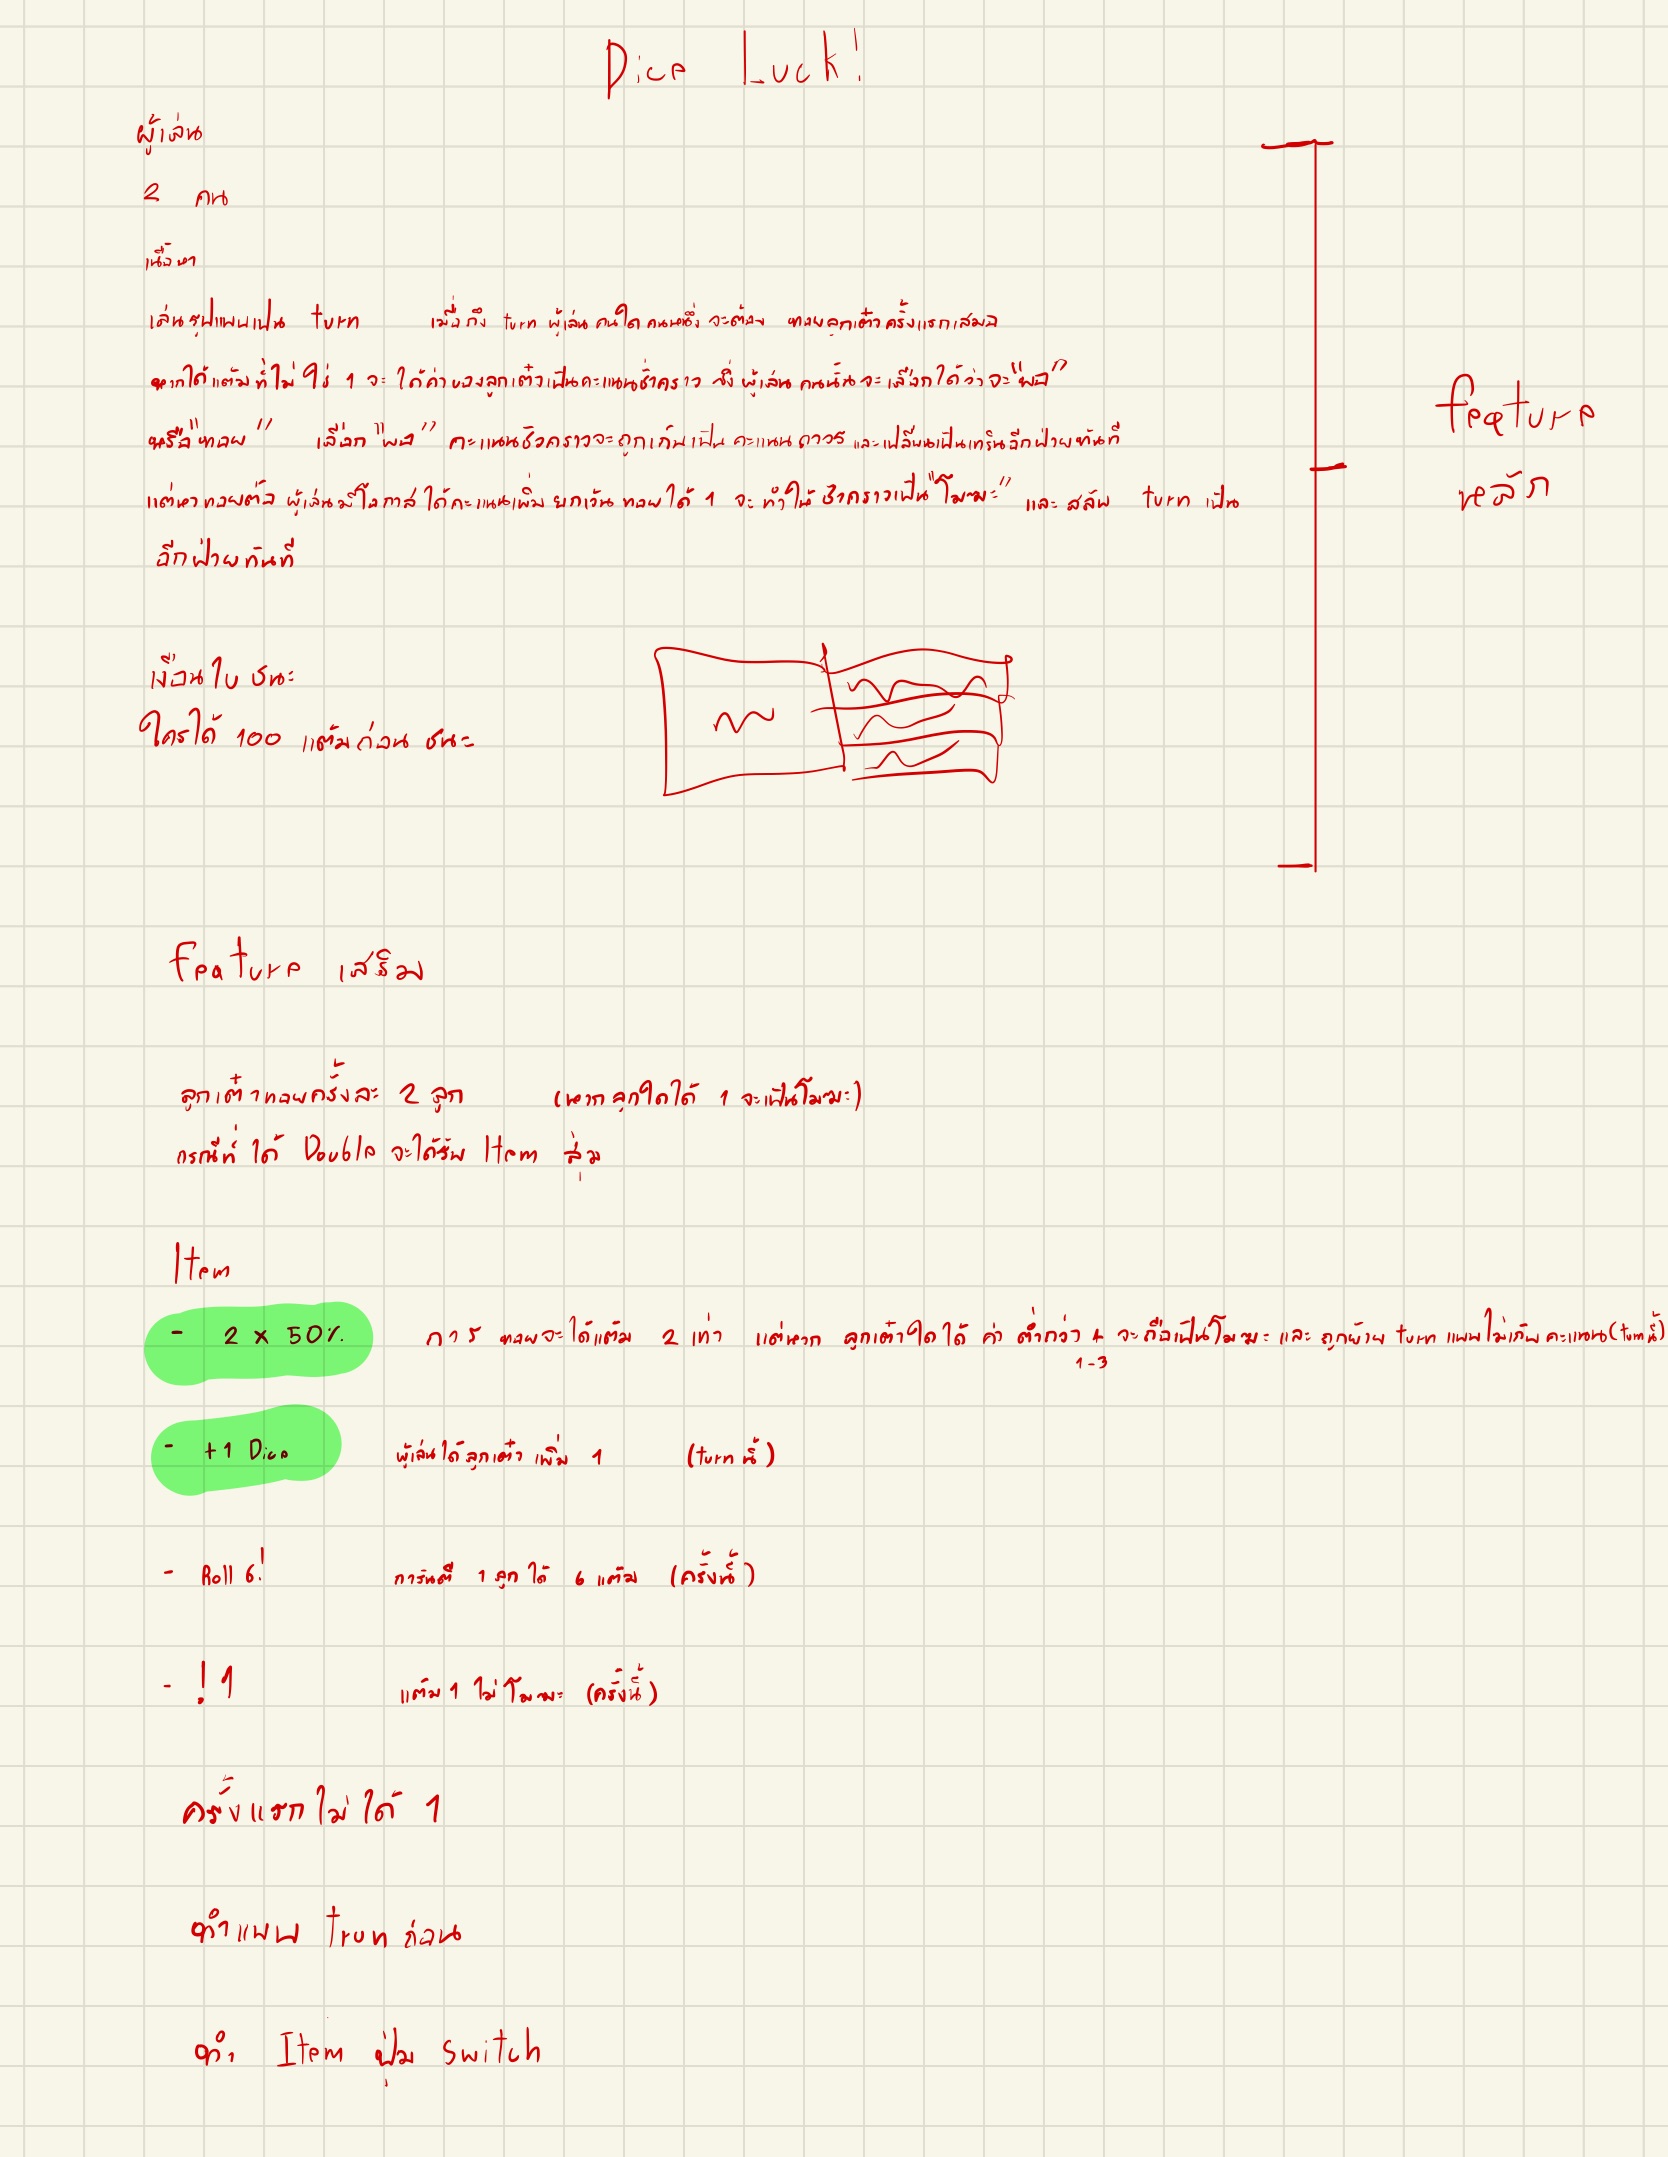 Dice Luck!
ผู้เล่น
2 คน
เนื้อหา
เล่นรูปแบบเป็น turn เมื่อถึง turn ผู้เล่นคนใดคนหนึ่ง จะต้อง ทอยลูกเต๋าครั้งแรกเสมอ
หากได้แต้มที่ไม่ใช่ 1 จะ ได้ค่าของลูกเต๋าเป็นคะแนนชั่วคราว ซึ่ง ผู้เล่น คนนั้นจะเลือกได้ว่าจะ "พอ"
หรือ "ทอย" เลือก "พอ" คะแนนชั่วคราวจะถูกเก็บเป็น คะแนน ถาวร และเปลี่ยนเป็นเทิร์นอีกฝ่ายทันที
แต่หากทอยต่อ ผู้เล่นมีโอกาสได้คะแนนเพิ่ม ยกเว้น ทอยได้ 1 จะ ทำให้ ชั่วคราวเป็น "โมฆะ" และ สลับ turn เป็น
อีกฝ่ายทันที
feature
หลัก
เงื่อนไข ชนะ
ใครได้ 100 แต้มก่อน ชนะ
feature เสริม
ลูกเต๋าทอยครั้งละ 2 ลูก (หากลูกใดได้ 1 จะเป็นโมฆะ)
กรณีที่ ได้ Double จะได้รับ Item สุ่ม
Item
- 2 x 50% การ ทอยจะได้แต้ม 2 เท่า แต่หาก ลูกเต๋าใดได้ ค่า ต่ำกว่า 4 จะถือเป็นโมฆะ และ ถูกย้าย turn แบบไม่เก็บ คะแนน (turn นี้)
1-3
- +1 Dice ผู้เล่นได้ลูกเต๋า เพิ่ม 1 (turn นี้)
- Roll 6! การันตี 1 ลูก ได้ 6 แต้ม (ครั้งนี้)
- !1 แต้ม 1 ไม่โมฆะ (ครั้งนี้)
ครั้งแรกไม่ได้ 1
ทำแบบ trun ก่อน
ทำ Item ปุ่ม switch